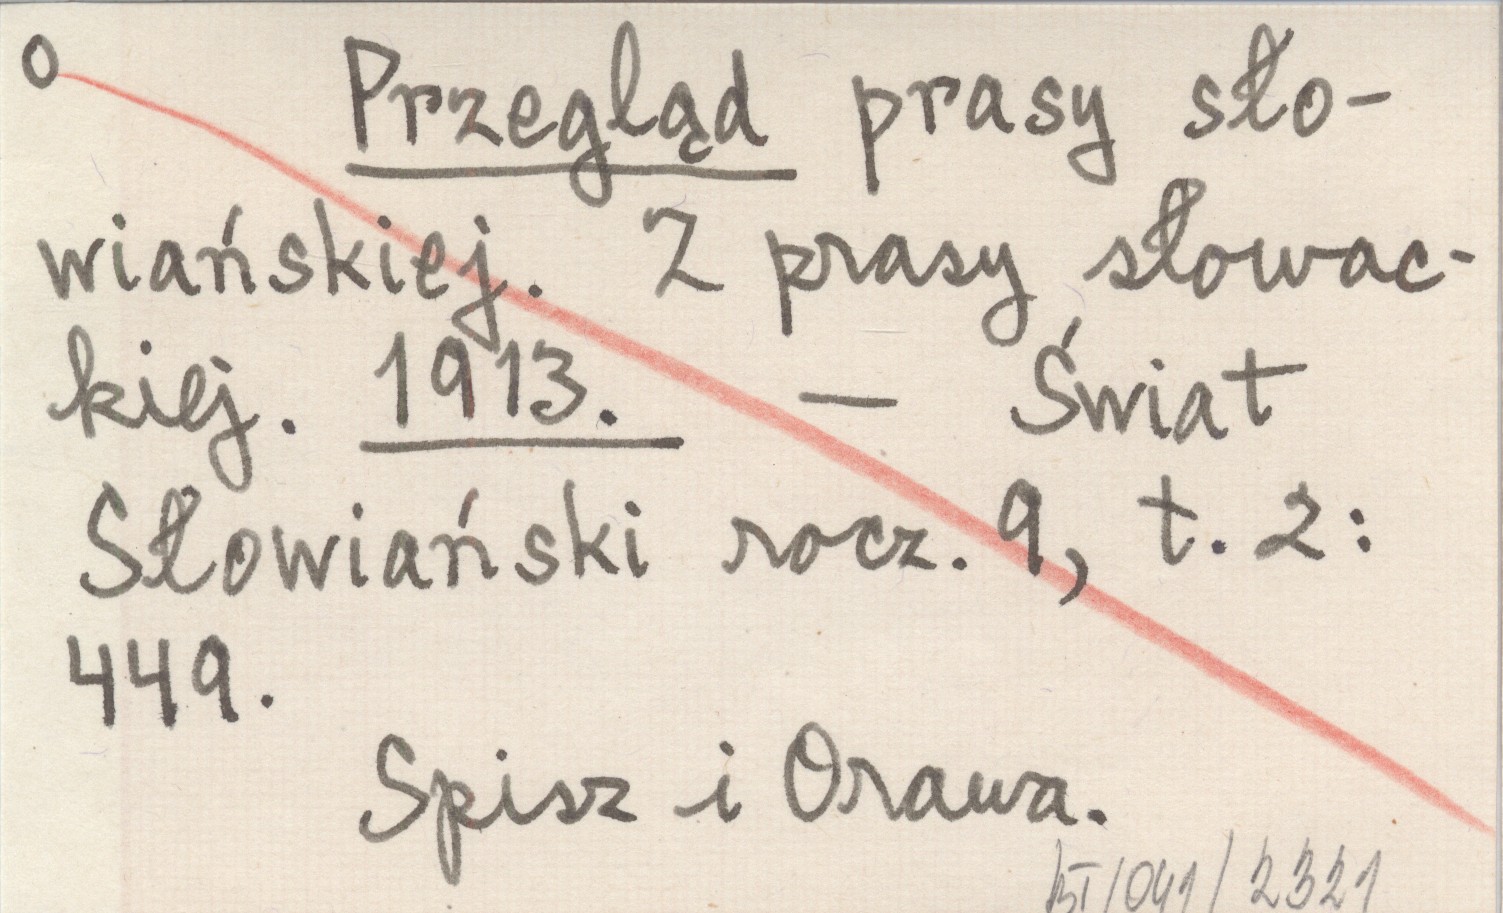 0 Przegląd prasy sło-
wiańskiej. Z prasy słowac-
kiej. 1913. — Świat
Słowiański rocz. 9, t. 2:
449.
Spisz i Orawa.
BT/041/2321